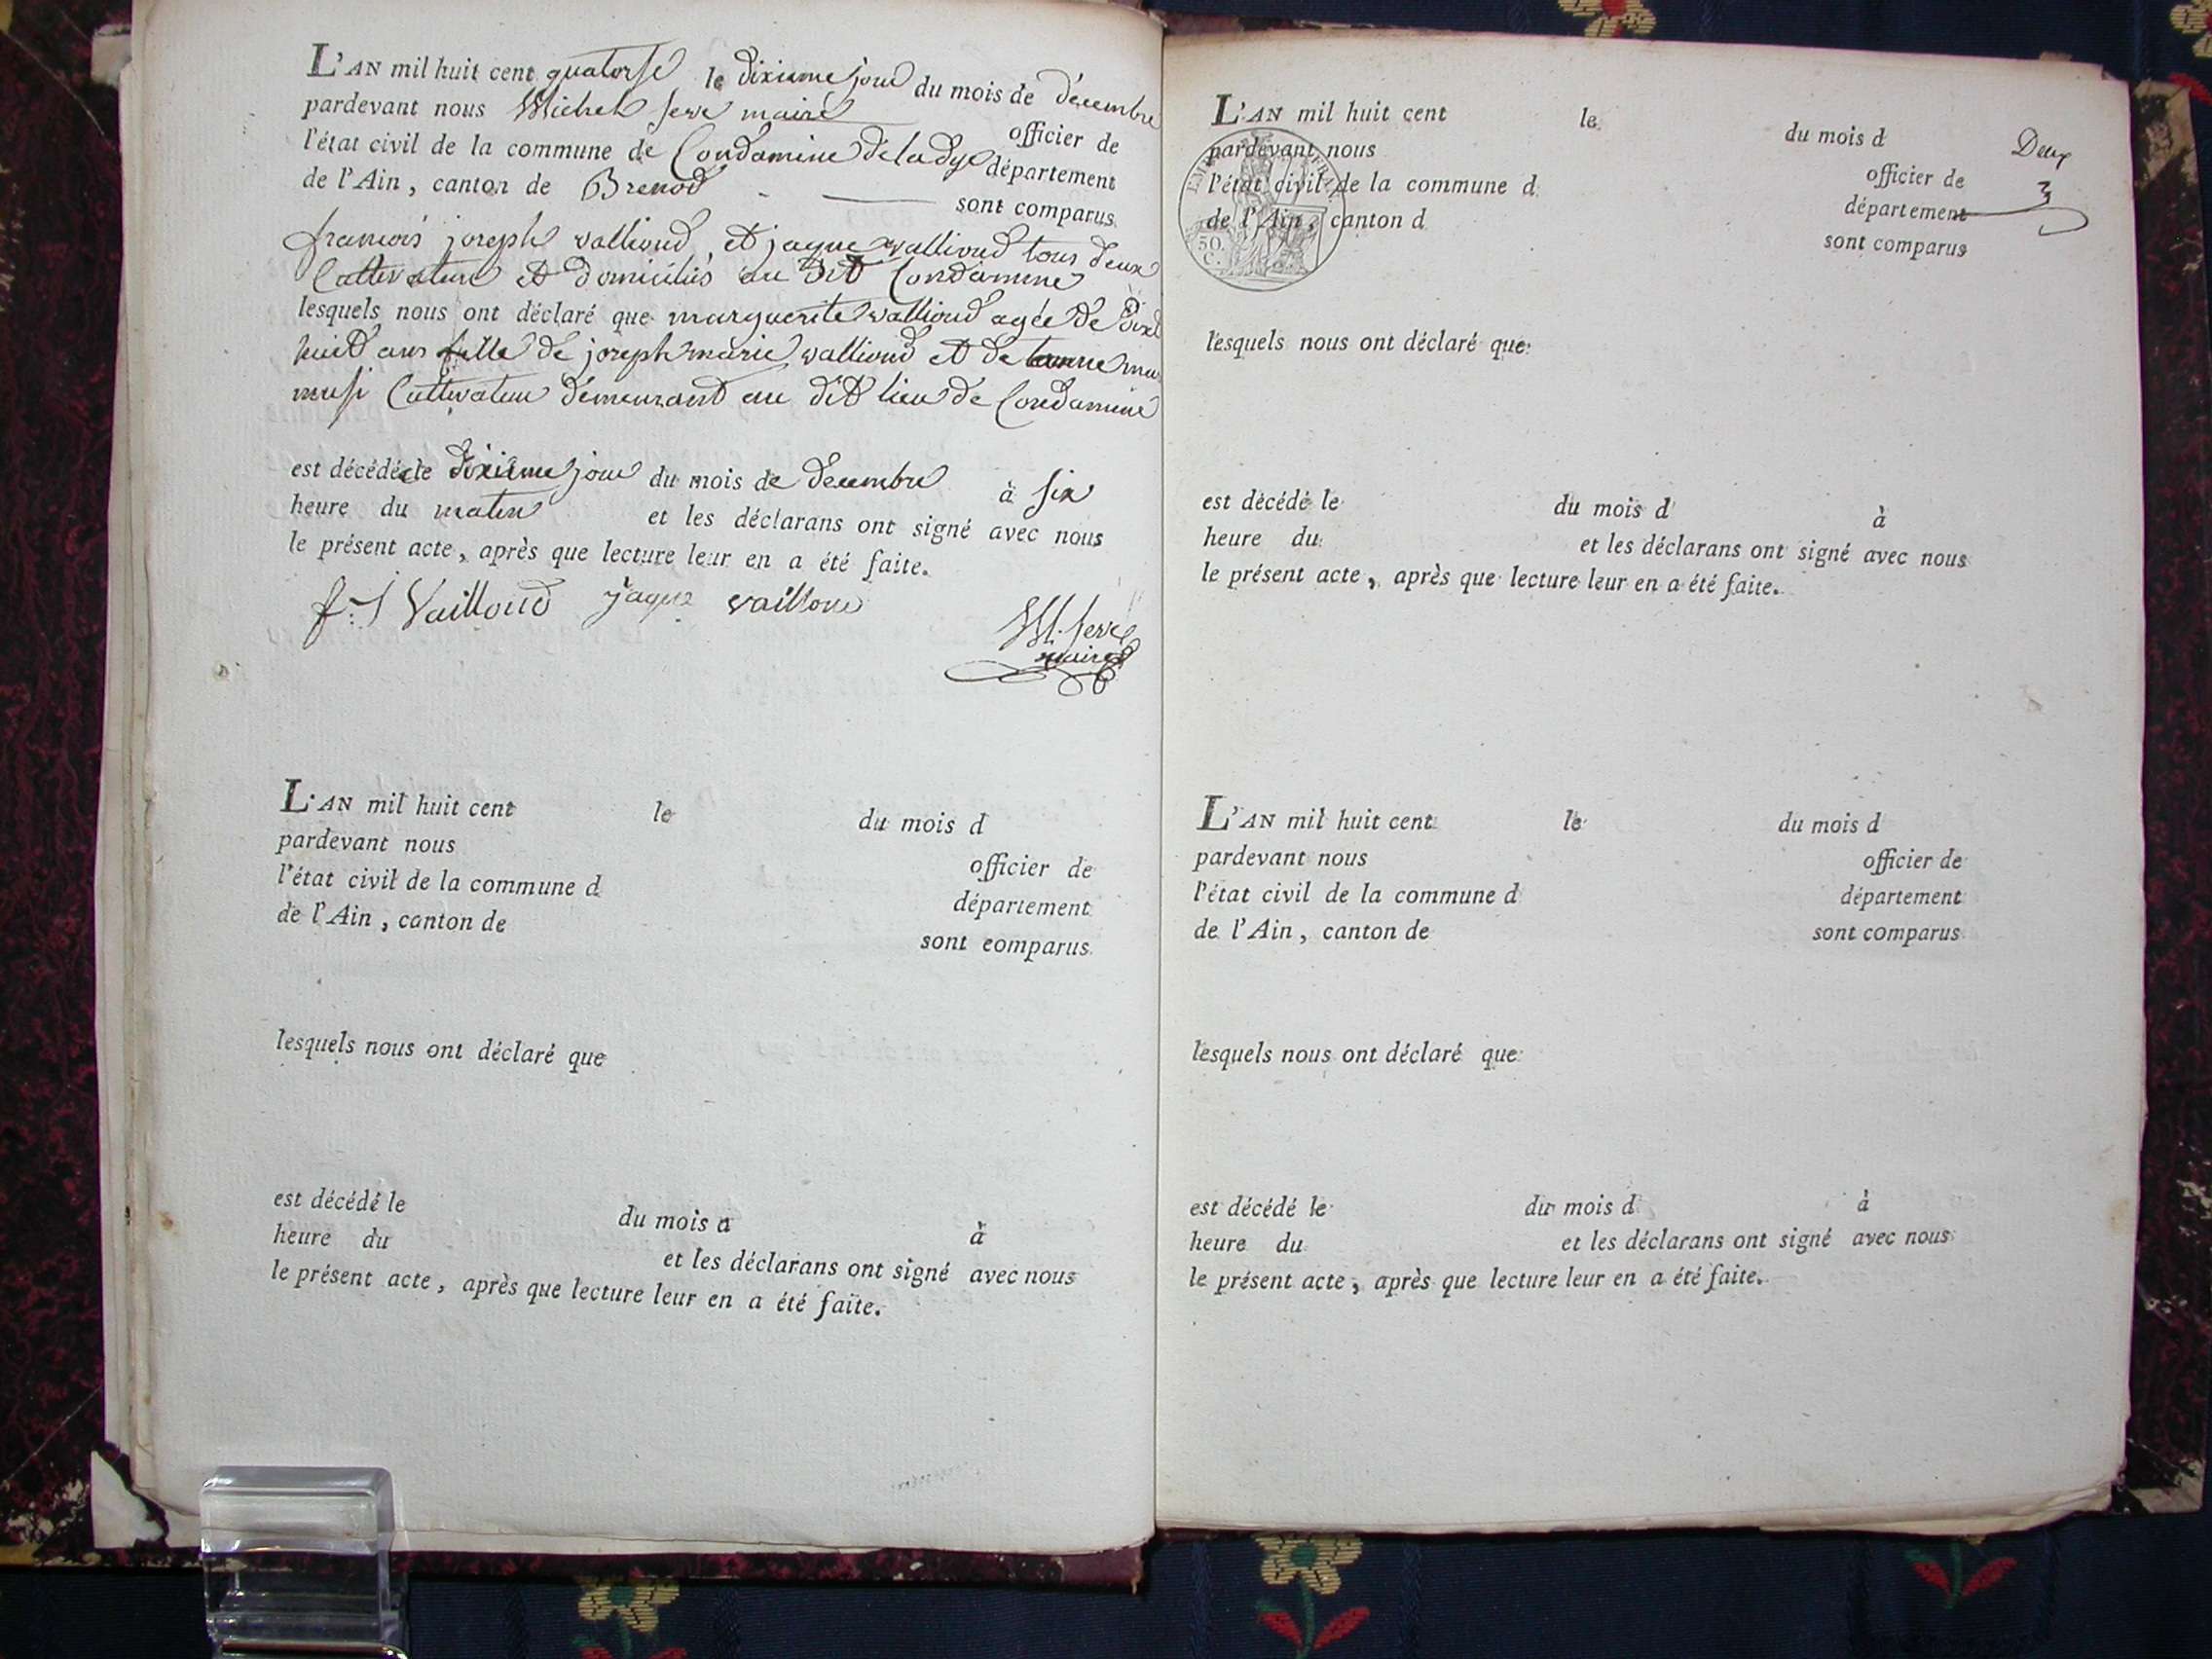 L'AN mil huit cent quatorse le dixiame jour du mois de décembre
pardevant nous Michel serve maire officier de
l'état civil de la commune de Condamine de la doye département
de l'Ain, canton de Brenod sont comparus
francois joseph vallioud et jaque vallioud tous deux
Cultivateur et domiciliés au dit Condamine
lesquels nous ont déclaré que marguerite vallioud agée de dix
huit ans fille de joseph marie vallioud et de
Cultivateur demeurant au dit lieu de Condamine
est décédée le dixième jour du mois de decembre à six
heure du matin et les déclarans ont signé avec nous
le présent acte, après que lecture leur en a été faite.
f. J Vailloud jaque vailloud M. serve
maire
L'AN mil huit cent le du mois d
pardevant nous officier de
l'état civil de la commune d département
de l'Ain, canton de sont comparus
lesquels nous ont déclaré que
est décédé le du mois d à
heure du et les déclarans ont signé avec nous
le présent acte, après que lecture leur en a été faite.
Deux
L'AN mil huit cent le du mois d
pardevant nous officier de
l'état civil de la commune d département
de l'Ain, canton d sont comparus
50.
C.
lesquels nous ont déclaré que
est décédé le du mois d à
heure du et les déclarans ont signé avec nous
le présent acte, après que lecture leur en a été faite.
L'AN mil huit cent le du mois d
pardevant nous officier de
l'état civil de la commune d département
de l'Ain, canton de sont comparus
lesquels nous ont déclaré que
est décédé le du mois d à
heure du et les déclarans ont signé avec nous
le présent acte, après que lecture leur en a été faite.